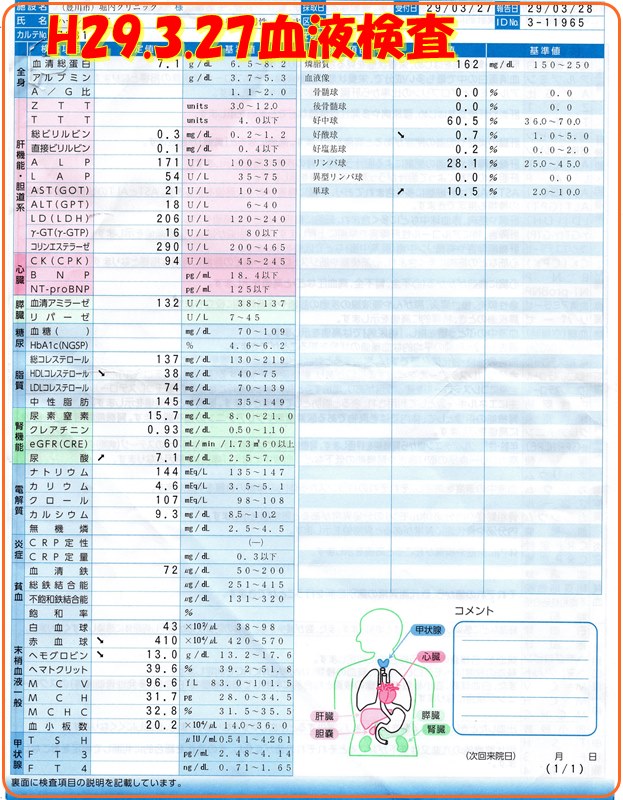 施設名 (豊川市)堀内クリニック
受付日 29/03/27 報告日 29/03/28
氏名
IDNo 3-11965
カルテNo
H29.3.27血液検査
基準値
全身
血清総蛋白 7.1 g/dL 6.5~8.2
アルブミン g/dL 3.7~5.3
A/G比 1.1~2.0
肝機能・胆道系
ZTT units 3.0~12.0
TTT units 4.0以下
総ビリルビン 0.3 mg/dL 0.2~1.2
直接ビリルビン 0.1 mg/dL 0.4以下
ALP 171 U/L 100~350
LAP 54 U/L 35~75
AST(GOT) 21 U/L 10~40
ALT(GPT) 18 U/L 6~40
LD(LDH) 206 U/L 120~240
γ-GT(γ-GTP) 16 U/L 80以下
コリンエステラーゼ 290 U/L 200~465
心臓
CK(CPK) 94 U/L 45~245
BNP pg/mL 18.4以下
NT-proBNP pg/mL 125以下
膵臓
血清アミラーゼ 132 U/L 38~137
リパーゼ U/L 7~45
糖尿
血糖( ) mg/dL 70~109
HbA1c(NGSP) % 4.6~6.2
脂質
総コレステロール 137 mg/dL 130~219
HDLコレステロール ↘ 38 mg/dL 40~75
LDLコレステロール 74 mg/dL 70~139
中性脂肪 145 mg/dL 35~149
腎機能
尿素窒素 15.7 mg/dL 8.0~21.0
クレアチニン 0.93 mg/dL 0.50~1.10
eGFR(CRE) 60 mL/min/1.73㎡60以上
尿酸 ↗ 7.1 mg/dL 2.5~7.0
電解質
ナトリウム 144 mEq/L 135~147
カリウム 4.6 mEq/L 3.5~5.1
クロール 107 mEq/L 98~108
カルシウム 9.3 mg/dL 8.5~10.2
無機燐 mg/dL 2.5~4.5
炎症
CRP定性 (-)
CRP定量 mg/dL 0.3以下
貧血
血清鉄 72 μg/dL 50~200
総鉄結合能 μg/dL 251~415
不飽和鉄結合能 μg/dL 131~320
飽和率 %
末梢血液一般
白血球 43 ×10²/μL 38~98
赤血球 ↘ 410 ×10⁴/μL 420~570
ヘモグロビン ↘ 13.0 g/dL 13.2~17.6
ヘマトクリット 39.6 % 39.2~51.8
MCV 96.6 fL 83.0~101.5
MCH 31.7 pg 28.0~34.5
MCHC 32.8 % 31.5~35.5
血小板数 20.2 ×10⁴/μL 14.0~36.0
甲状腺
TSH μIU/mL 0.541~4.261
FT3 pg/mL 2.48~4.14
FT4 ng/dL 0.71~1.65
裏面に検査項目の説明を記載しています。
燐脂質 162 mg/dL 150~250
血液像
骨髄球 0.0 % 0.0
後骨髄球 0.0 % 0.0
好中球 60.5 % 36.0~70.0
好酸球 ↘ 0.7 % 1.0~5.0
好塩基球 0.2 % 0.0~2.0
リンパ球 28.1 % 25.0~45.0
異型リンパ球 0.0 % 0.0
単球 ↗ 10.5 % 2.0~10.0
甲状腺
心臓
肝臓
胆嚢
膵臓
腎臓
コメント
(次回来院日) 月 日
(1/1)